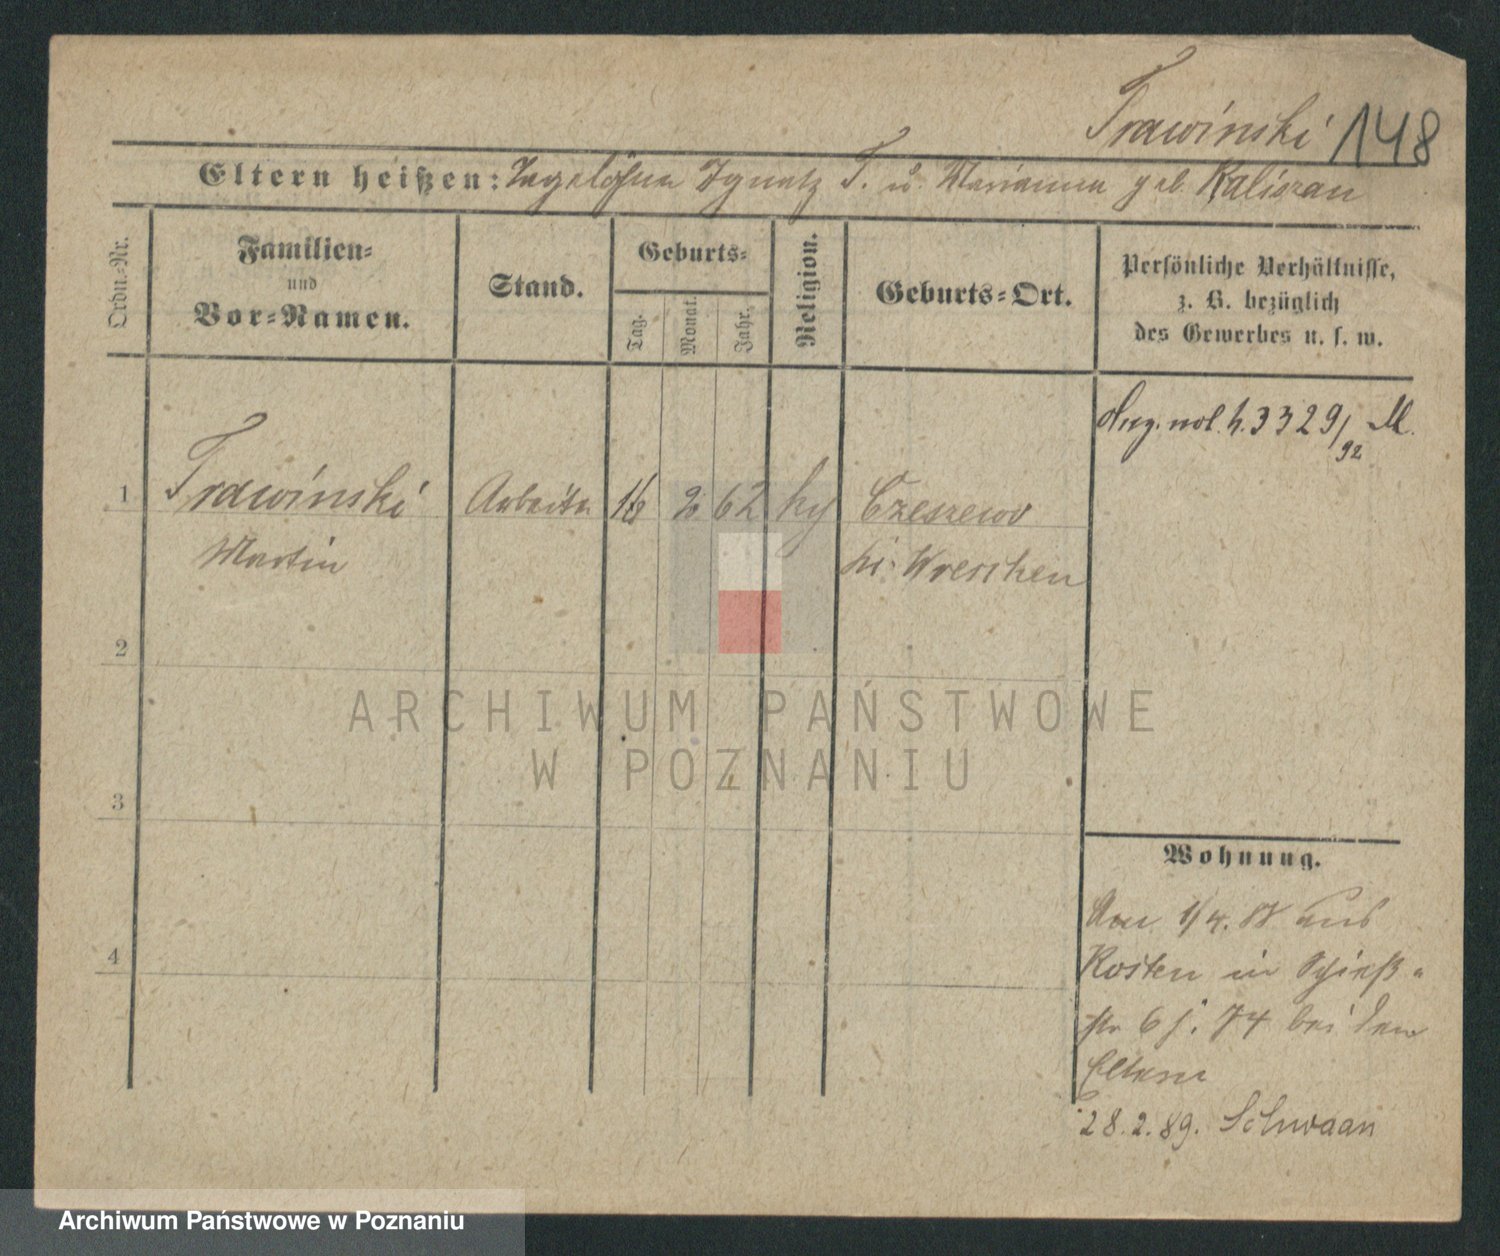 Trawinski 148
Eltern heißen: Tagelöhner Ignatz T. u. Marianna geb. Kaliszan
Ordn.-Nr.
Familien-
und
Vor-Namen.
Stand.
Geburts-
Tag.
Monat.
Jahr.
Religion.
Geburts-Ort.
Persönliche Verhältnisse,
z. B. bezüglich
des Gewerbes u. s. w.
3329/92 M.
1 Trawinski Arbeiter 2 62 Czeszewo
Martin Wreschen
2
ARCHIWUM PAŃSTWOWE
W POZNANIU
3
4
Wohnung.
1/4. aus
Kosten in Schieß-
str 6 j. 74 bei den
Eltern
28.2.89. Schwaan
Archiwum Państwowe w Poznaniu